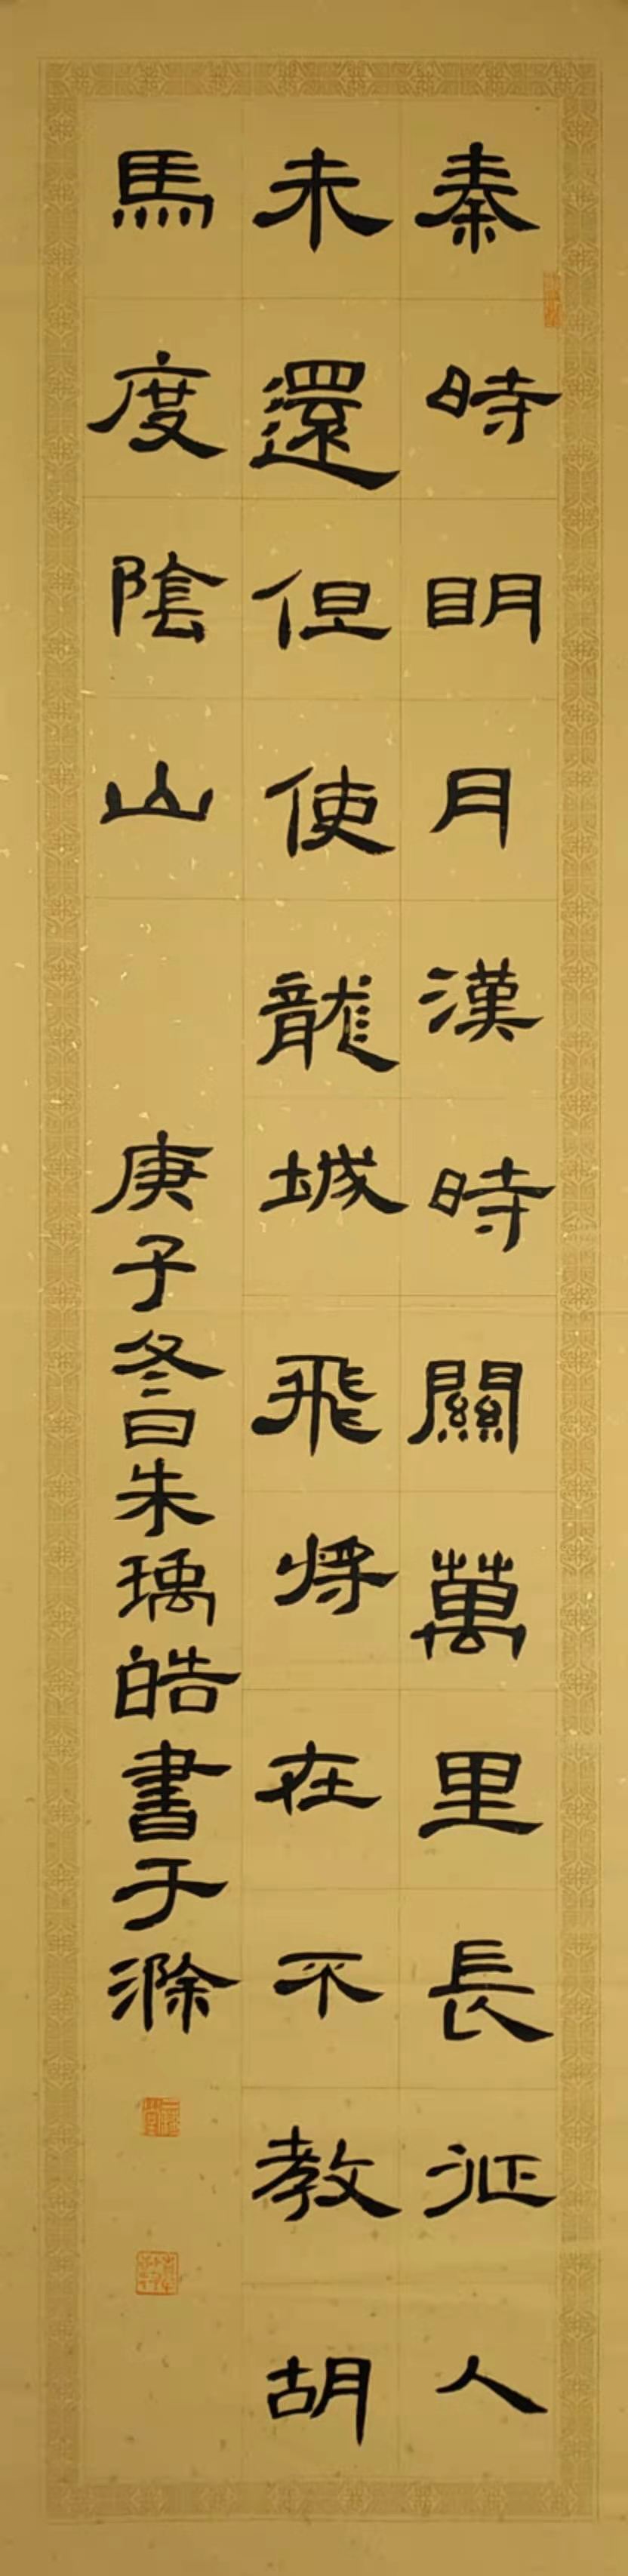 秦時明月漢時關萬里長征人
未還但使龍城飛將在不教胡
馬度陰山
庚子冬日朱瑀皓書于滁